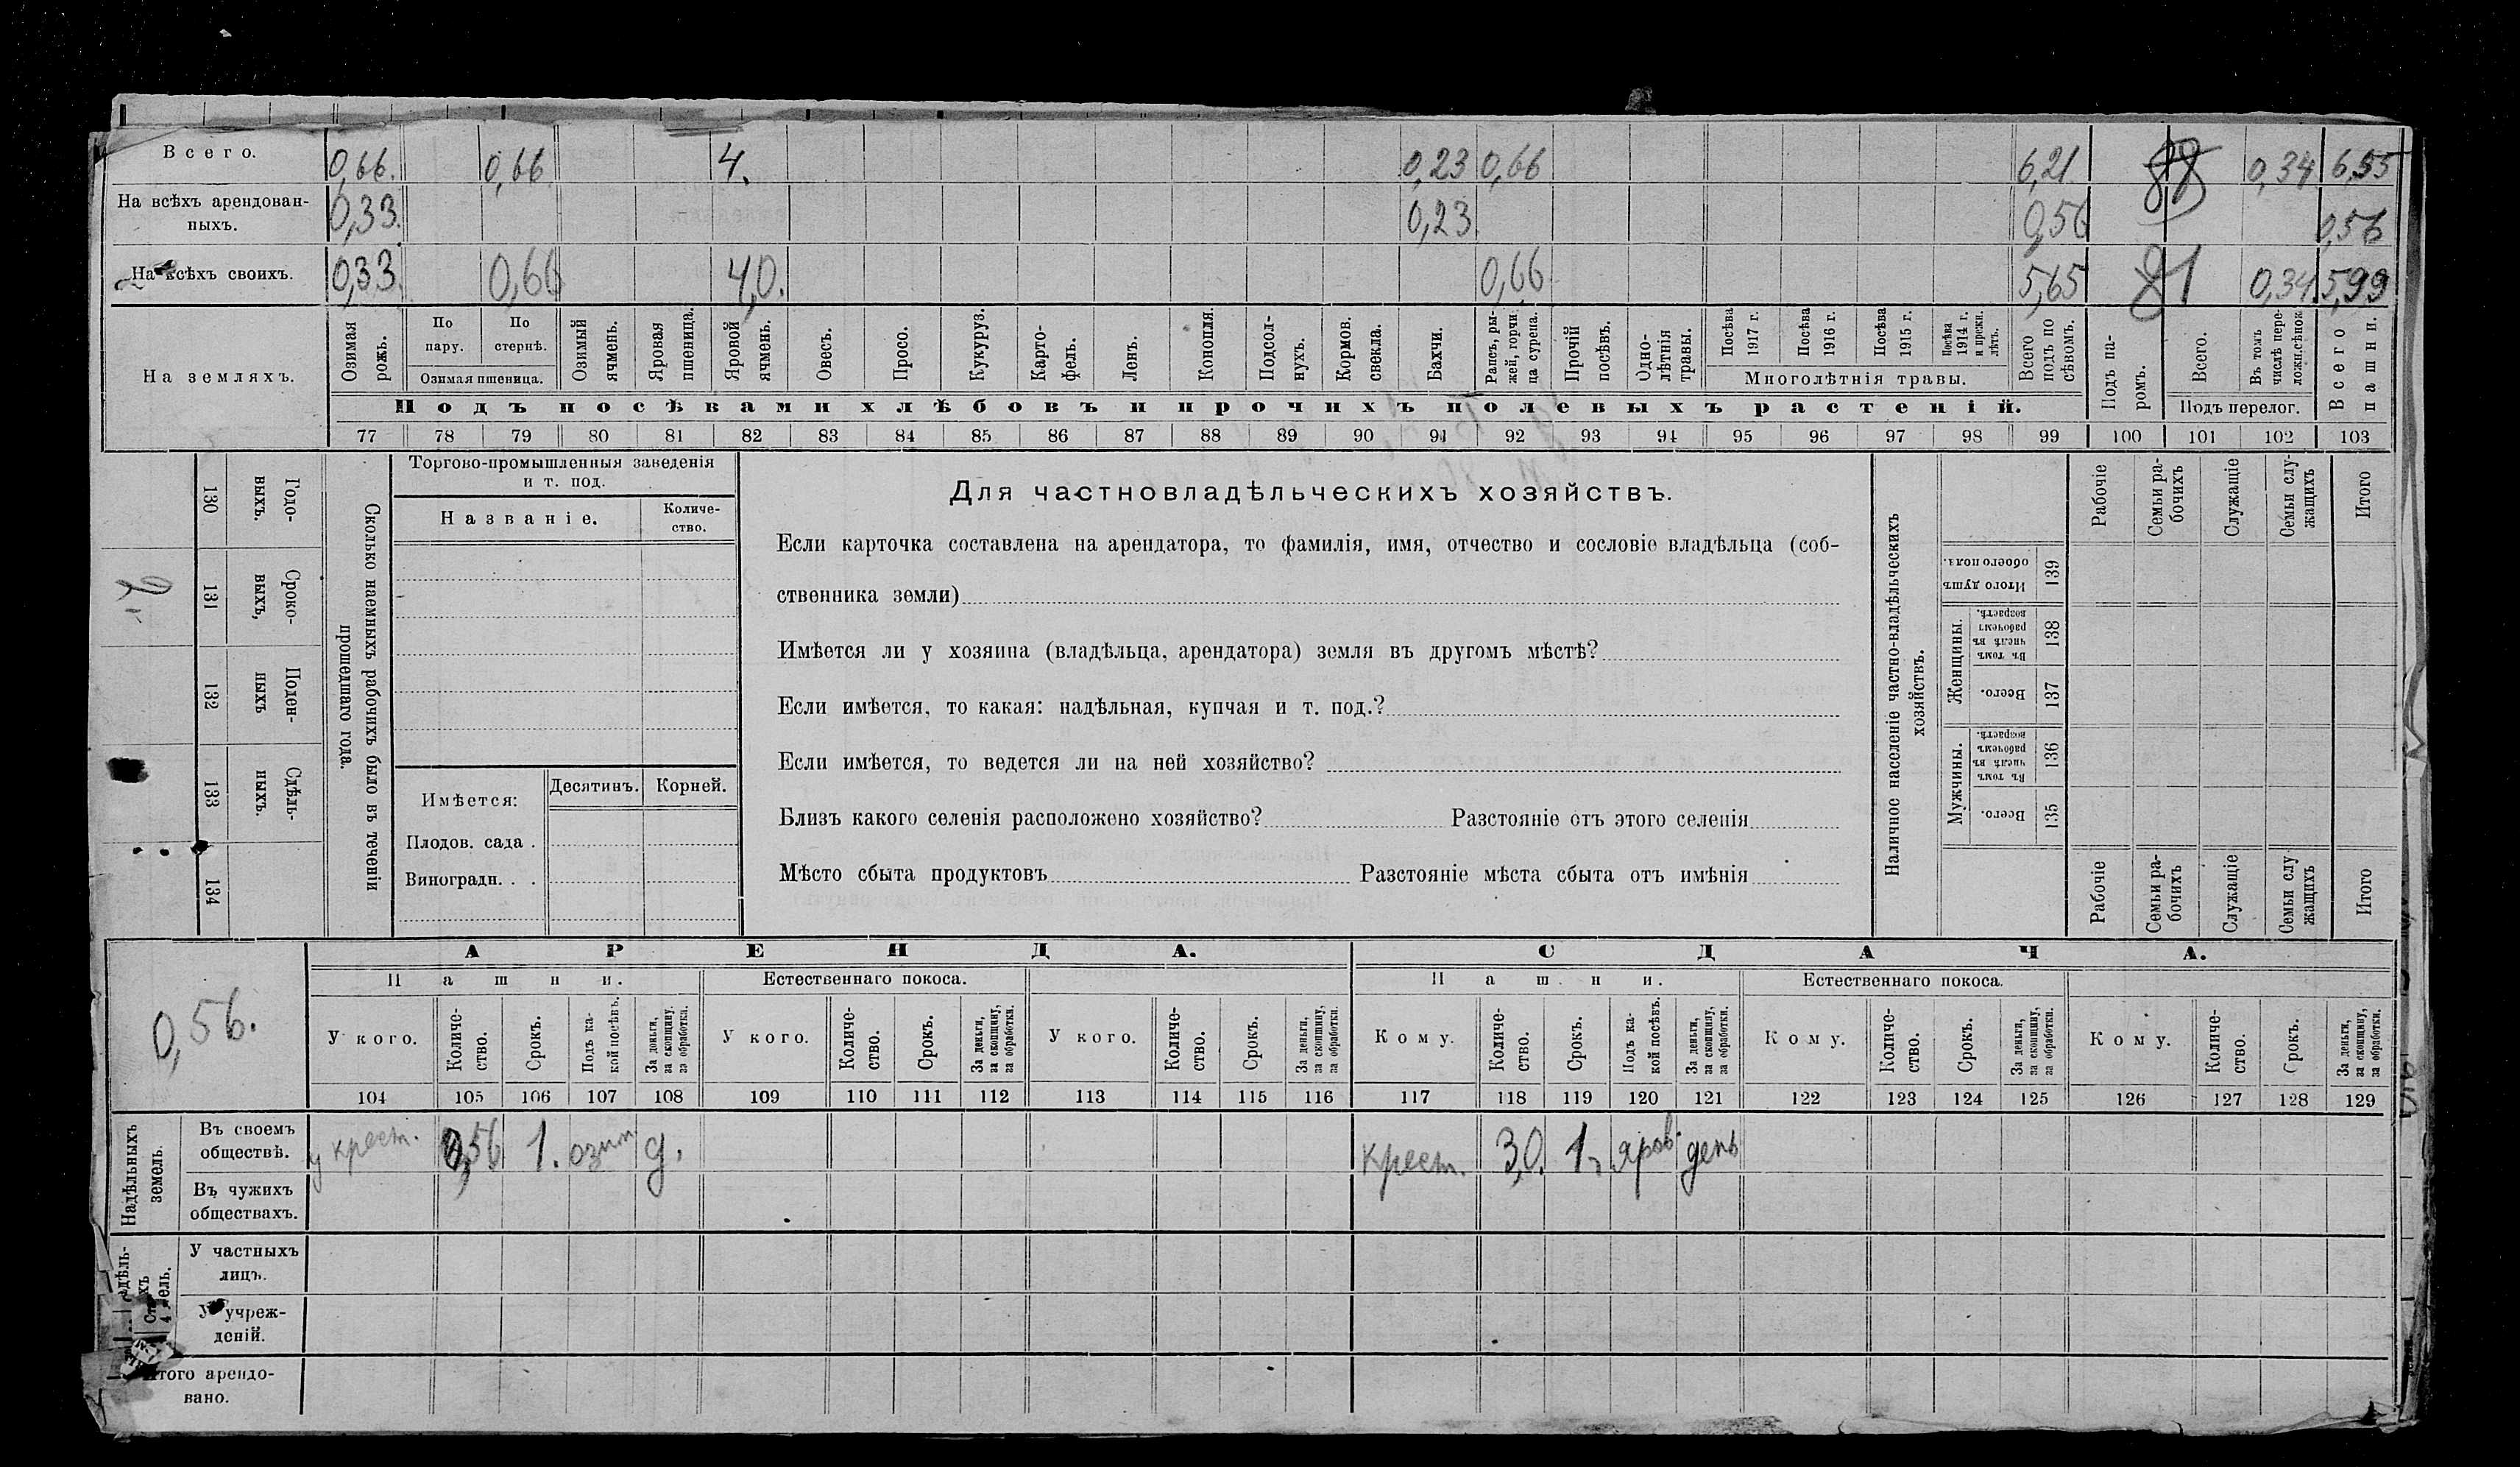 Всего. 0,66. 0,66 4. 0,23 0,66 6,21 0,34 6,55
На всѣхъ арендован-
ныхъ. 0,33. 0,23. 0,56 0,56
На всѣхъ своихъ. 0,33. 0,66 4,0. 0,66 5,65 0,34 5,99
На земляхъ.
Озимая
рожь.
По
пару.
По
стернѣ.
Озимая пшеница.
Озимый
ячмень.
Яровая
пшеница.
Яровой
ячмень.
Овесъ.
Просо.
Кукуруз.
Карто-
фель.
Ленъ.
Конопля.
Подсол-
нухъ.
Кормов.
свекла.
Бахчи.
Рапсъ, ры-
жей, горчи
ца сурепа.
Прочій
посѣвъ.
Одно-
лѣтнія
травы.
Посѣва
1917 г.
Посѣва
1916 г.
Посѣва
1915 г.
Посѣва
1914 г.
и прежн.
лѣтъ.
Многолѣтнія травы.
Всего
подъ по
сѣвомъ.
Подъ па-
ромъ.
Всего.
Въ томъ
числѣ пере-
ложн.сѣнок
Подъ перелог.
Всего
пашни.
Подъ посѣвами хлѣбовъ и прочихъ полевыхъ растеній.
77 78 79 80 81 82 83 84 85 86 87 88 89 90 91 92 93 94 95 96 97 98 99 100 101 102 103
Годо-
выхъ.
130
Сроко-
выхъ,
131
Поден-
ныхъ
132
Сдѣль-
ныхъ.
133
134
Сколько наемныхъ рабочихъ было въ теченіи
прошедшаго года.
Торгово-промышленныя заведенія
и т. под.
Названіе.
Количе-
ство.
Имѣется:
Десятинъ. Корней.
Плодов. сада .
Виноградн. . .
Для частновладѣльческихъ хозяйствъ.
Если карточка составлена на арендатора, то фамилія, имя, отчество и сословіе владѣльца (соб-
ственника земли)
Имѣется ли у хозяина (владѣльца, арендатора) земля въ другомъ мѣстѣ?
Если имѣется, то какая: надѣльная, купчая и т. под.?
Если имѣется, то ведется ли на ней хозяйство?
Близъ какого селенія расположено хозяйство? Разстояніе отъ этого селенія
Мѣсто сбыта продуктовъ Разстояніе мѣста сбыта отъ имѣнія
Наличное населеніе частно-владѣльческихъ
хозяйствъ.
Рабочіе
Семьи ра-
бочихъ
Служащіе
Семьи слу-
жащихъ
Итого
Итого душъ
обоего пола.
139
Женщины.
Въ томъ
числѣ въ
рабочемъ
возрастѣ.
138
Всего.
137
Мужчины.
Въ томъ
числѣ въ
рабочемъ
возрастѣ.
136
Всего.
135
Рабочіе
Семьи ра-
бочихъ
Служащіе
Семьи слу
жащихъ
Итого
0,56.
АРЕНДА. СДАЧА.
Пашни. Естественнаго покоса. Пашни. Естественнаго покоса.
У кого.
Количе-
ство.
Срокъ.
Подъ ка-
кой посѣвъ.
За деньги,
за скопщину,
за обработки.
У кого.
Количе-
ство.
Срокъ.
За деньги,
за скопщину,
за обработки.
У кого.
Количе-
ство.
Срокъ.
За деньги,
за скопщину,
за обработки.
Кому.
Количе-
ство.
Срокъ.
Подъ ка-
кой посѣвъ.
За деньги,
за скопщину,
за обработки.
Кому.
Количе-
ство.
Срокъ.
За деньги,
за скопщину,
за обработки.
Кому.
Количе-
ство.
Срокъ.
За деньги,
за скопщину,
за обработки.
104 105 106 107 108 109 110 111 112 113 114 115 116 117 118 119 120 121 122 123 124 125 126 127 128 129
Надѣльныхъ
земель.
Въ своемъ
обществѣ.
у крест. 0,56 1. озим д. крест. 3,0. 1 яров. день
Въ чужихъ
обществахъ.
У частныхъ
лицъ.
У учреж-
деній.
Итого арендо-
вано.